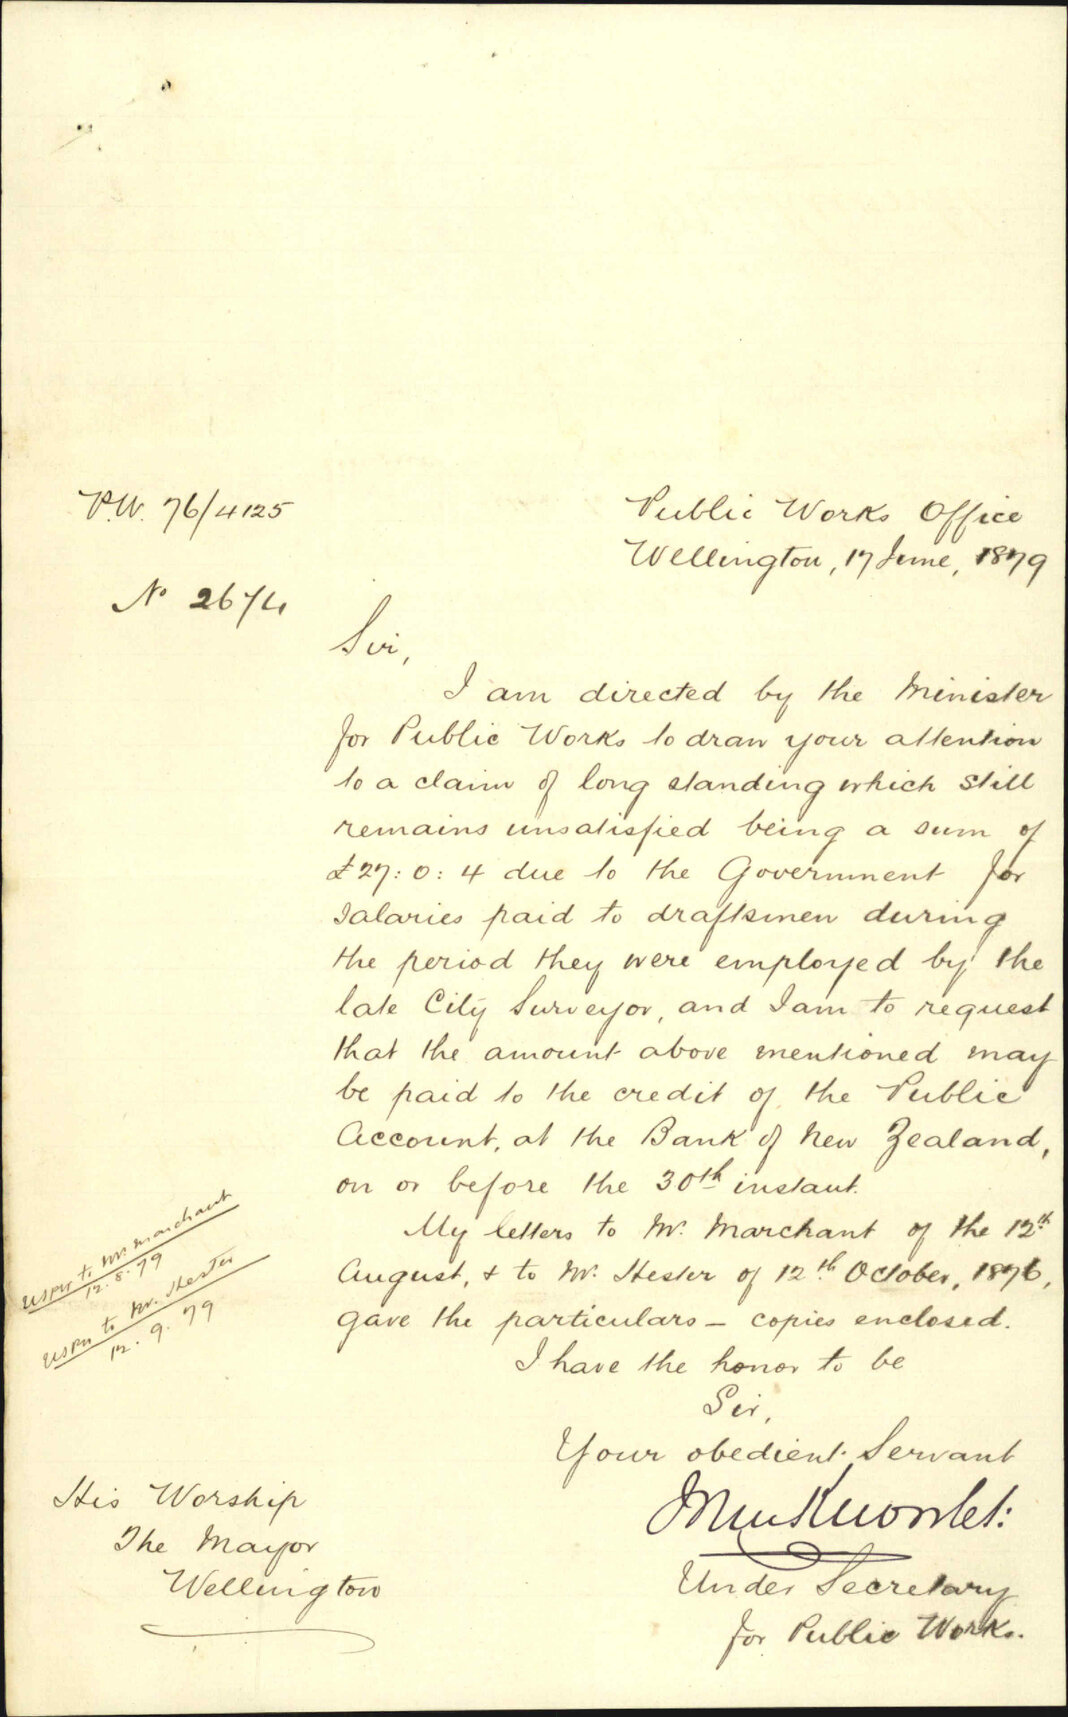 P.W. 76/4125
Public Works Office
Wellington, 17 June, 1879
No 2674
Sir,
I am directed by the Minister
for Public Works to draw your attention
to a claim of long standing which still
remains unsatisfied being a sum of
£27:0:4 due to the Government for
Salaries paid to draftsmen during
the period they were employed by the
late City Surveyor, and I am to request
that the amount above mentioned may
be paid to the credit of the Public
Account, at the Bank of New Zealand,
on or before the 30th instant.
My letters to Mr. Marchant of the 12th
August, & to Mr. Hester of 12th October, 1876,
gave the particulars – copies enclosed.
I have the honor to be
Sir,
Your obedient Servant
Under Secretary
for Public Works.
to Mr. Marchant
12.8.79
to Mr. Hester
12.9.79
His Worship
The Mayor
Wellington